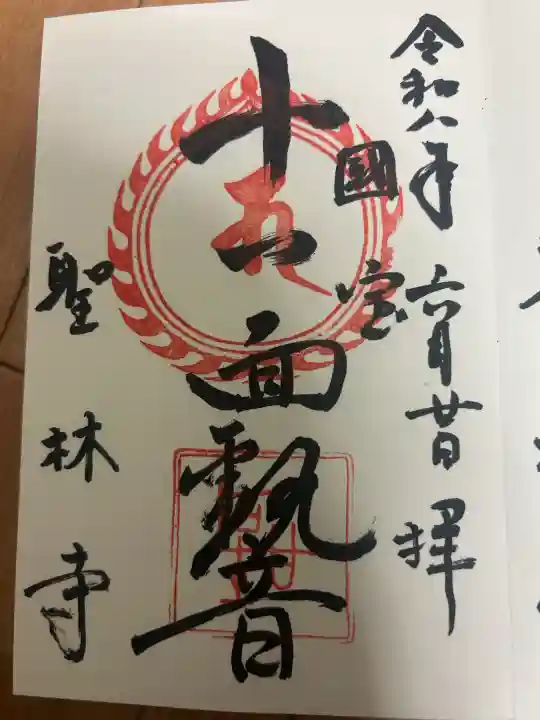 令和八年六月廿日 拝
國宝
十一面観音
聖林寺